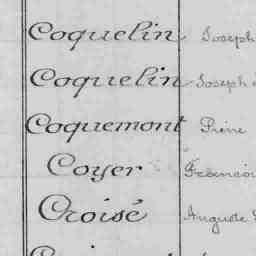 Coquelin Joseph
Coquelin Joseph
Coquemont Pierre
Coyer
Croisé Auguste